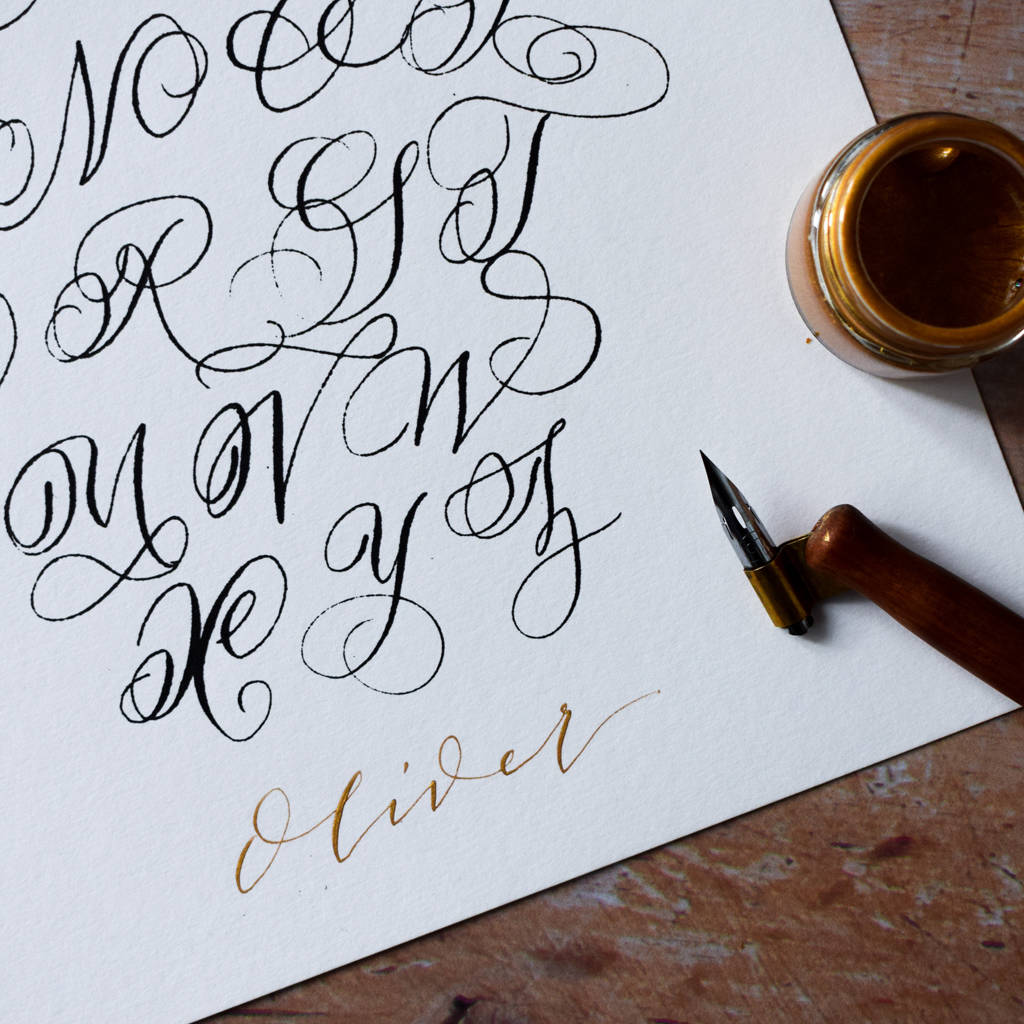 N O P
R S T
U V W
X Y Z
Oliver